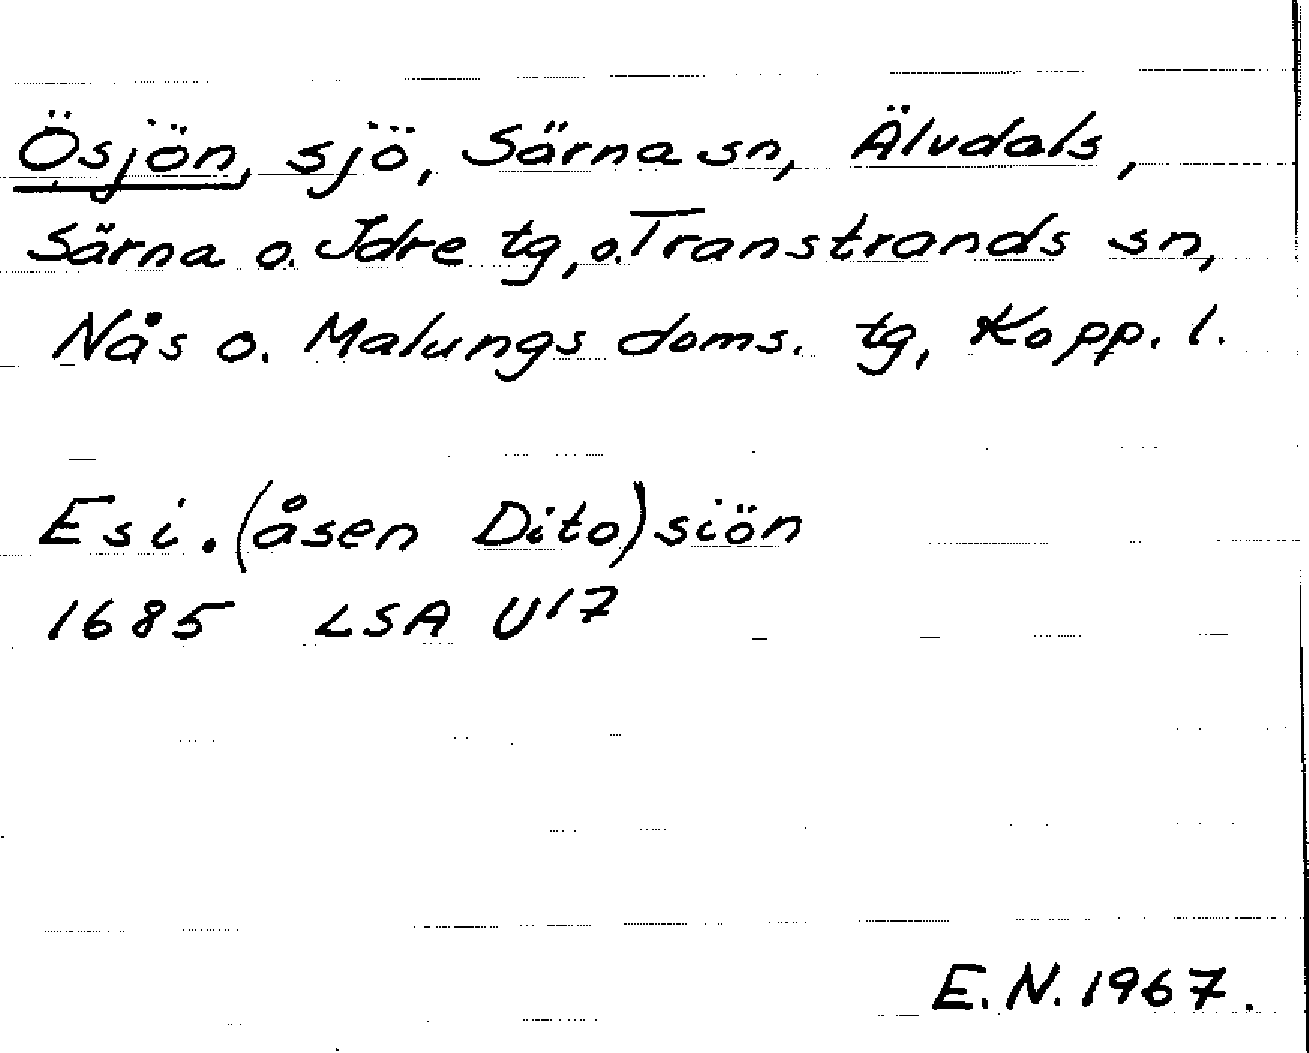 Ösjön, sjö, Särna sn, Älvdals,
Särna o. Idre tg, o. Transtrands sn,
Nås o. Malungs doms. tg, Kopp. l.
Esi. (åsen Dito) siön
1685 LSA U17
E.N. 1967.